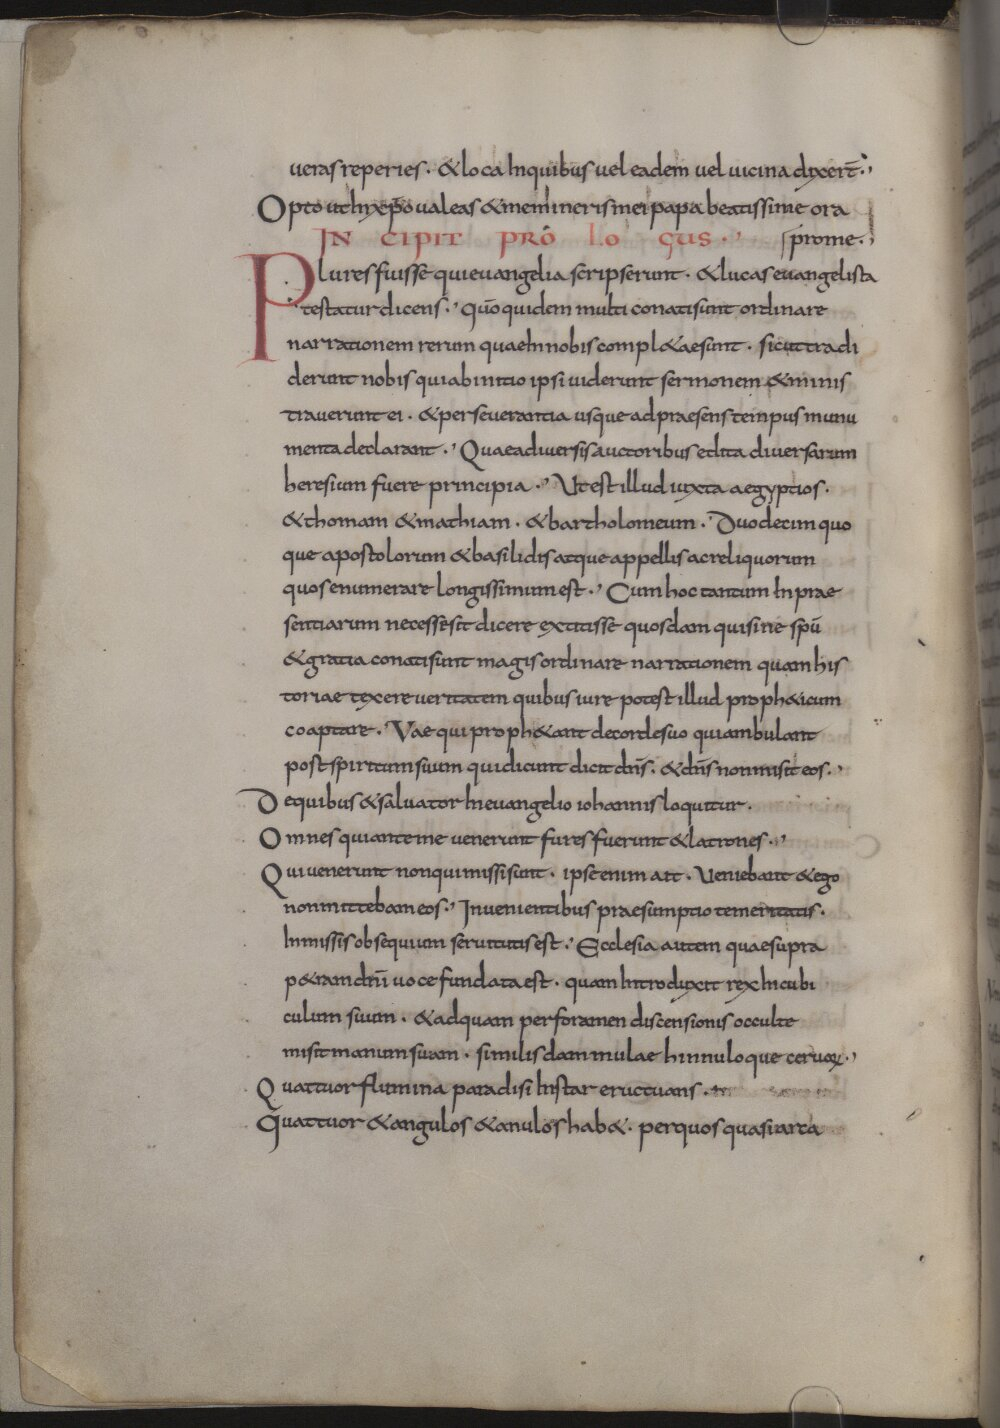 ueras reperies · & loca In quibus uel eadem uel uicina dixert̄ ·
Opto ut In xp̄o ualeas & memineris mei papa beatissime ora
IN CIPIT PRO LO GUS · prome ·
Plures fuisse qui euangelia scripserunt · & lucas euangelista
testatur dicens · quō quidem multi conati sunt ordinare
narrationem rerum quae In nobis compl&ae sunt · sicut tradi
derunt nobis qui ab initio ipsi uiderunt sermonem & minis
trauerunt ei · & perseuerantia usque ad praesens tempus munu
menta declarant · Quae a diuersis auctoribus edita diuersarum
heresium fuere principia · Ut est illud iuxta aegyptios ·
& thomam & mathiam · & bartholomeum · Duodecim quo
que apostolorum & basilidis atque appellis ac reliquorum
quos enumerare longissimum est · Cum hoc tantum In prae
sentiarum necesse sit dicere extitisse quosdam qui sine spū
& gratia conati sunt magis ordinare narrationem quam his
toriae texere ueritatem quibus iure potest illud proph&icum
coaptare · Vae qui proph&ant de corde suo qui ambulant
post spiritum suum qui dicunt dicit dn̄s · & dn̄s non misit eos ·
De quibus & saluator In euangelio iohannis loquitur ·
Omnes qui ante me uenerunt fures fuerunt & latrones ·
Qui uenerunt non qui missi sunt · ipse enim ait · Ueniebant & ego
non mittebam eos · In uenientibus praesumptio temeritatis ·
In missis obsequium seruitutis est · Ecclesia autem quae supra
p&ram dnī uoce fundata est · quam Introduxit rex In cubi
culum suum · & ad quam per foramen discensionis occulte
misit manum suam · similis dammulae hinnuloque ceruoꝝ ·
Quattuor flumina paradisi Instar eructuans ·
Quattuor & angulos & anulos hab& · per quos quasi arca